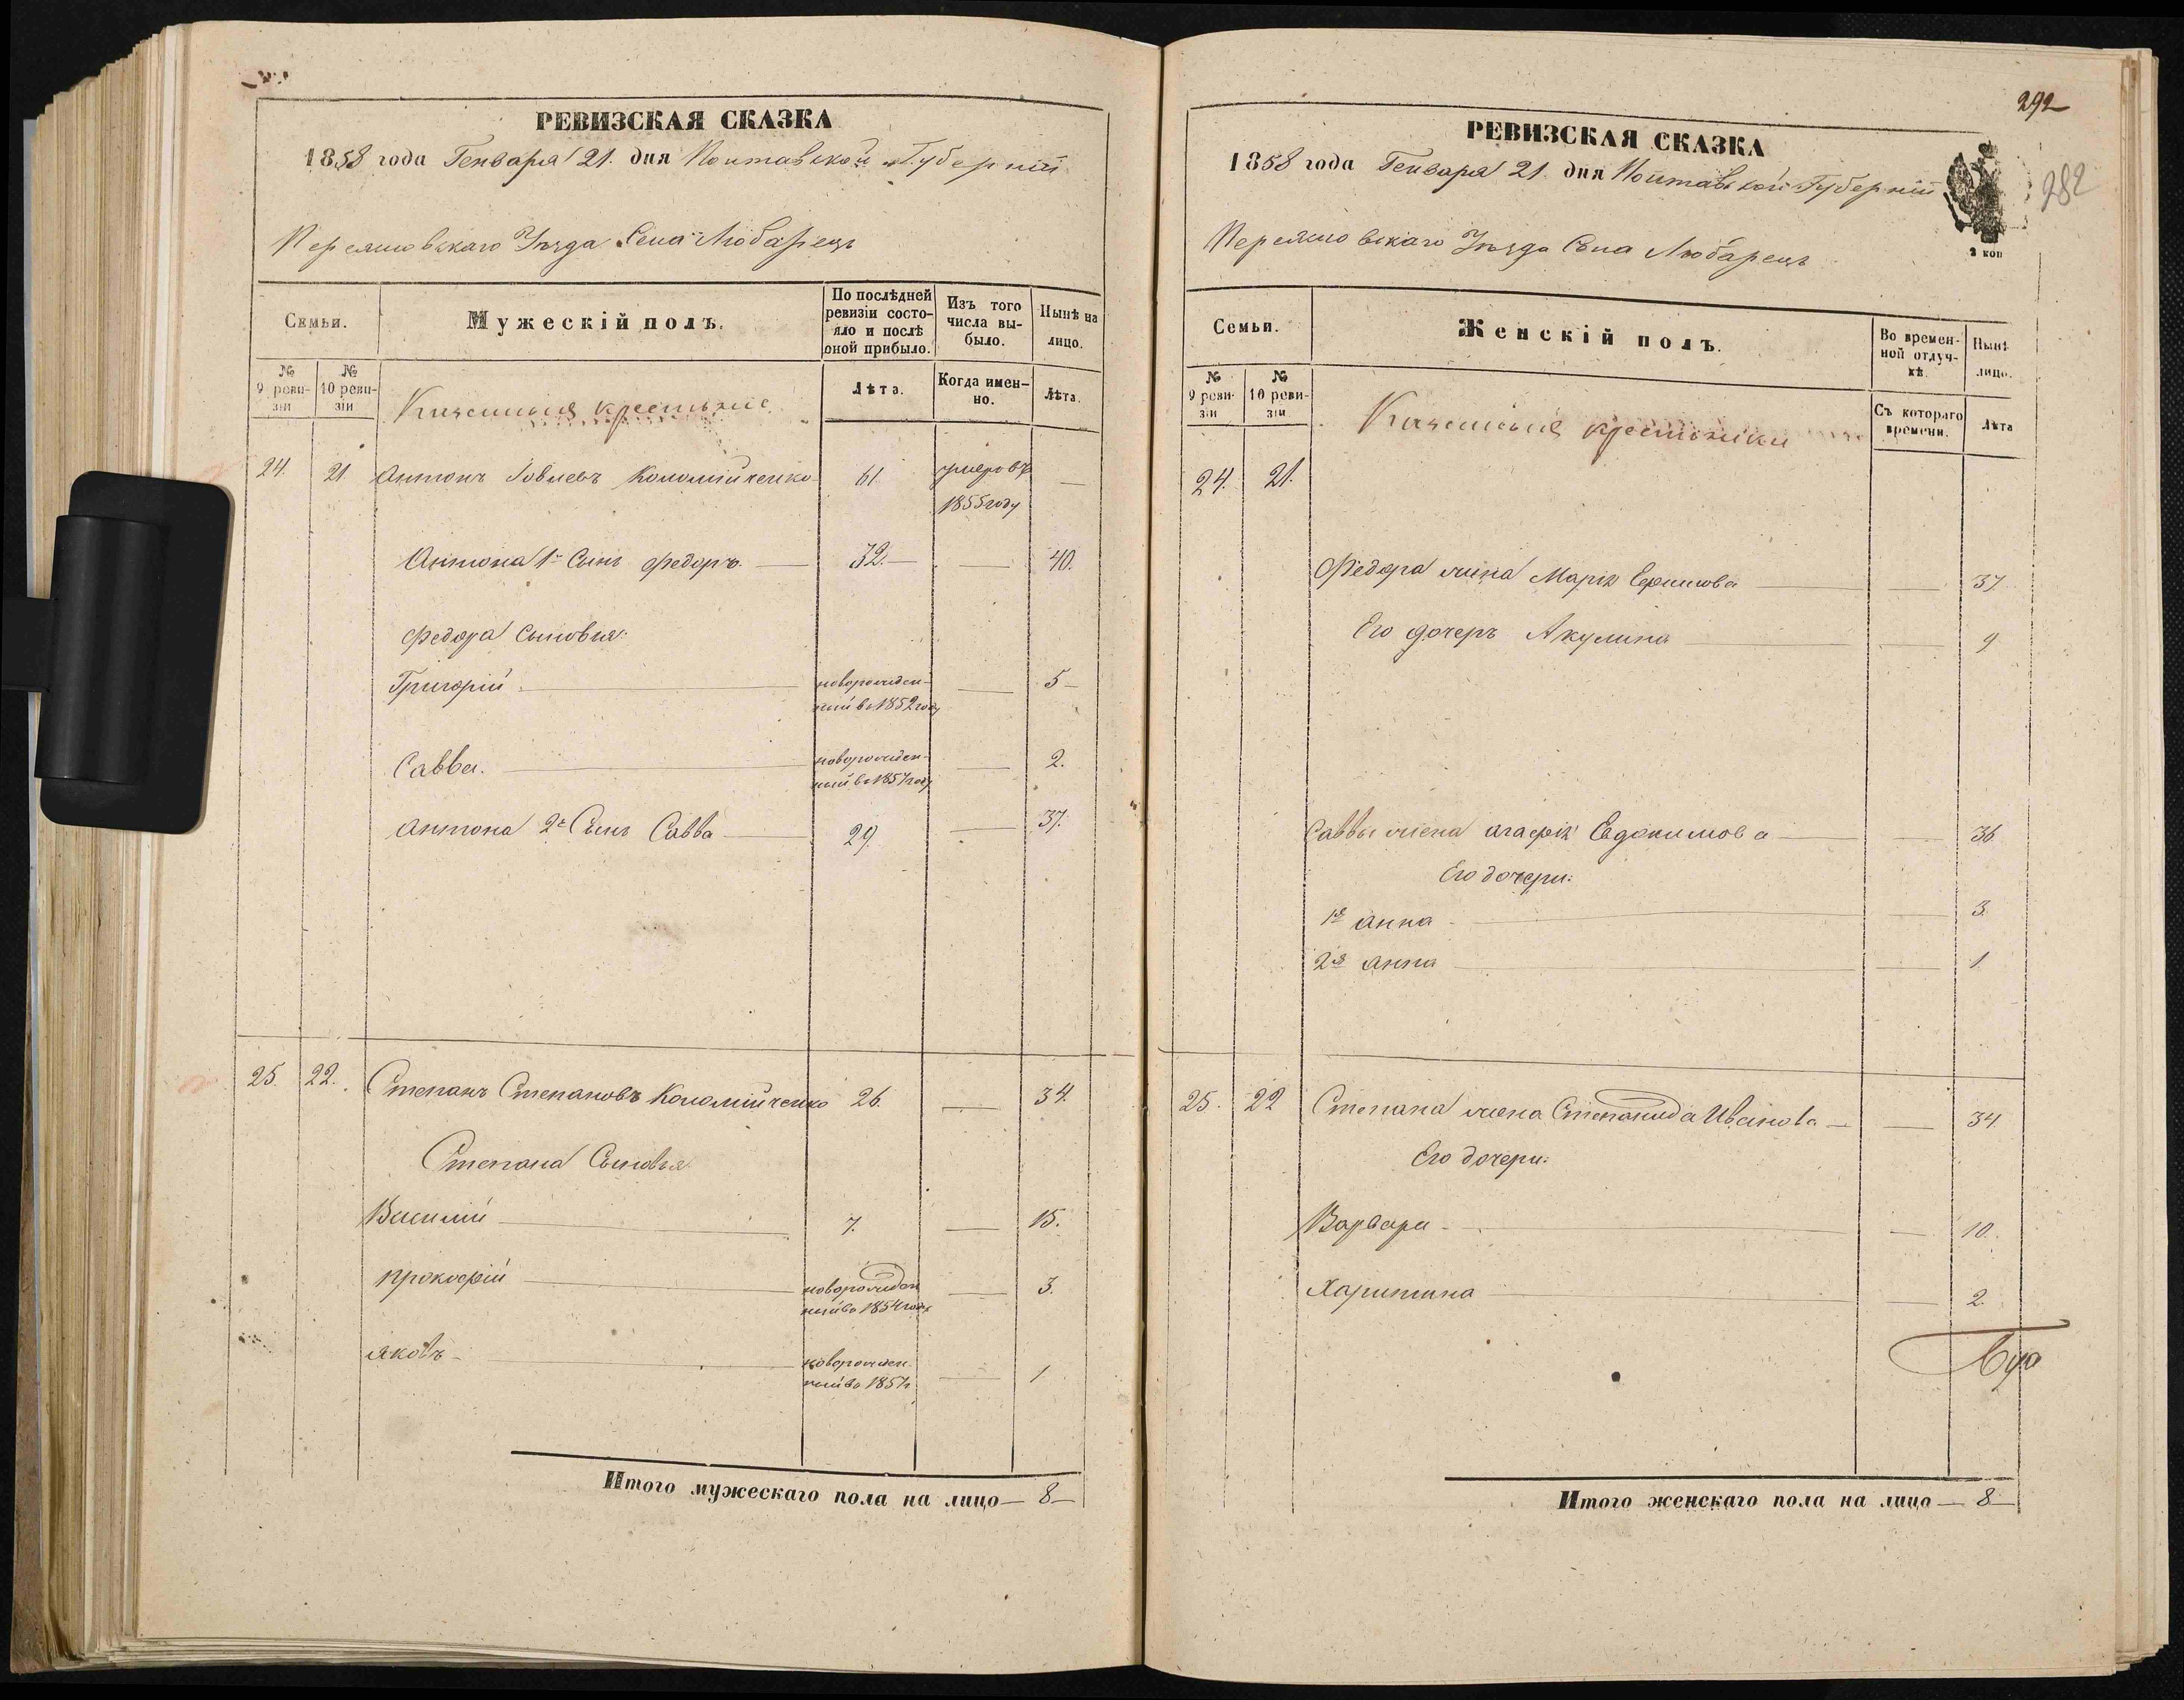 РЕВИЗСКАЯ СКАЗКА
1858 года Генваря 21. дня Полтавской Губерніи
Переяславскаго Уѣзда Села Любарецъ
Семьи.
Мужескій полъ.
По послѣдней ревизіи состояло и послѣ оной прибыло.
Изъ того числа выбыло.
Нынѣ на лицо.
№ 9 ревизіи
№ 10 ревизіи
Казенныя крестьяне
Лѣта.
Когда именно.
Лѣта.
24. 21 Антонъ Коломійченко 61 умеръ въ 1855 году —
Антона 1й Сынъ Федоръ — 32. — — 40.
Федора Сыновья:
Григорій — новорожденный въ 1852 году — 5 —
Савва. — новорожденный въ 1857 году — 2.
Антона 2й Сынъ Савва — 29. — 37.
25. 22. Степанъ Степановъ Коломійченко 26. — 34.
Степана Сыновья
Василій — 7. — 15.
Прокофій — новорожденный въ 1854 году — 3.
Яковъ — новорожденный въ 1857 — 1
Итого мужескаго пола на лицо — 8 —
292
282
РЕВИЗСКАЯ СКАЗКА
1858 года Генваря 21. дня Полтавской Губерніи
2 коп
Переяславскаго Уѣзда Села Любарецъ
Семьи.
Женскій полъ.
Во временной отлучкѣ.
Нынѣ лицо.
№ 9 ревизіи
№ 10 ревизіи
Казенныя крестьянки
Съ котораго времени.
Лѣта
24. 21.
Федора жена Марія Ефимова — — 37.
Его дочерь Акулина — — 9
Саввы жена Агафія Евдокимова — — 36
Его дочери:
1я Анна — — 3.
2я Анна — — 1
25. 22 Степана жена Степанида Иванова — — 34
Его дочери:
Варвара — — 10.
Харитина — — 2.
Итого женскаго пола на лицо — 8 —